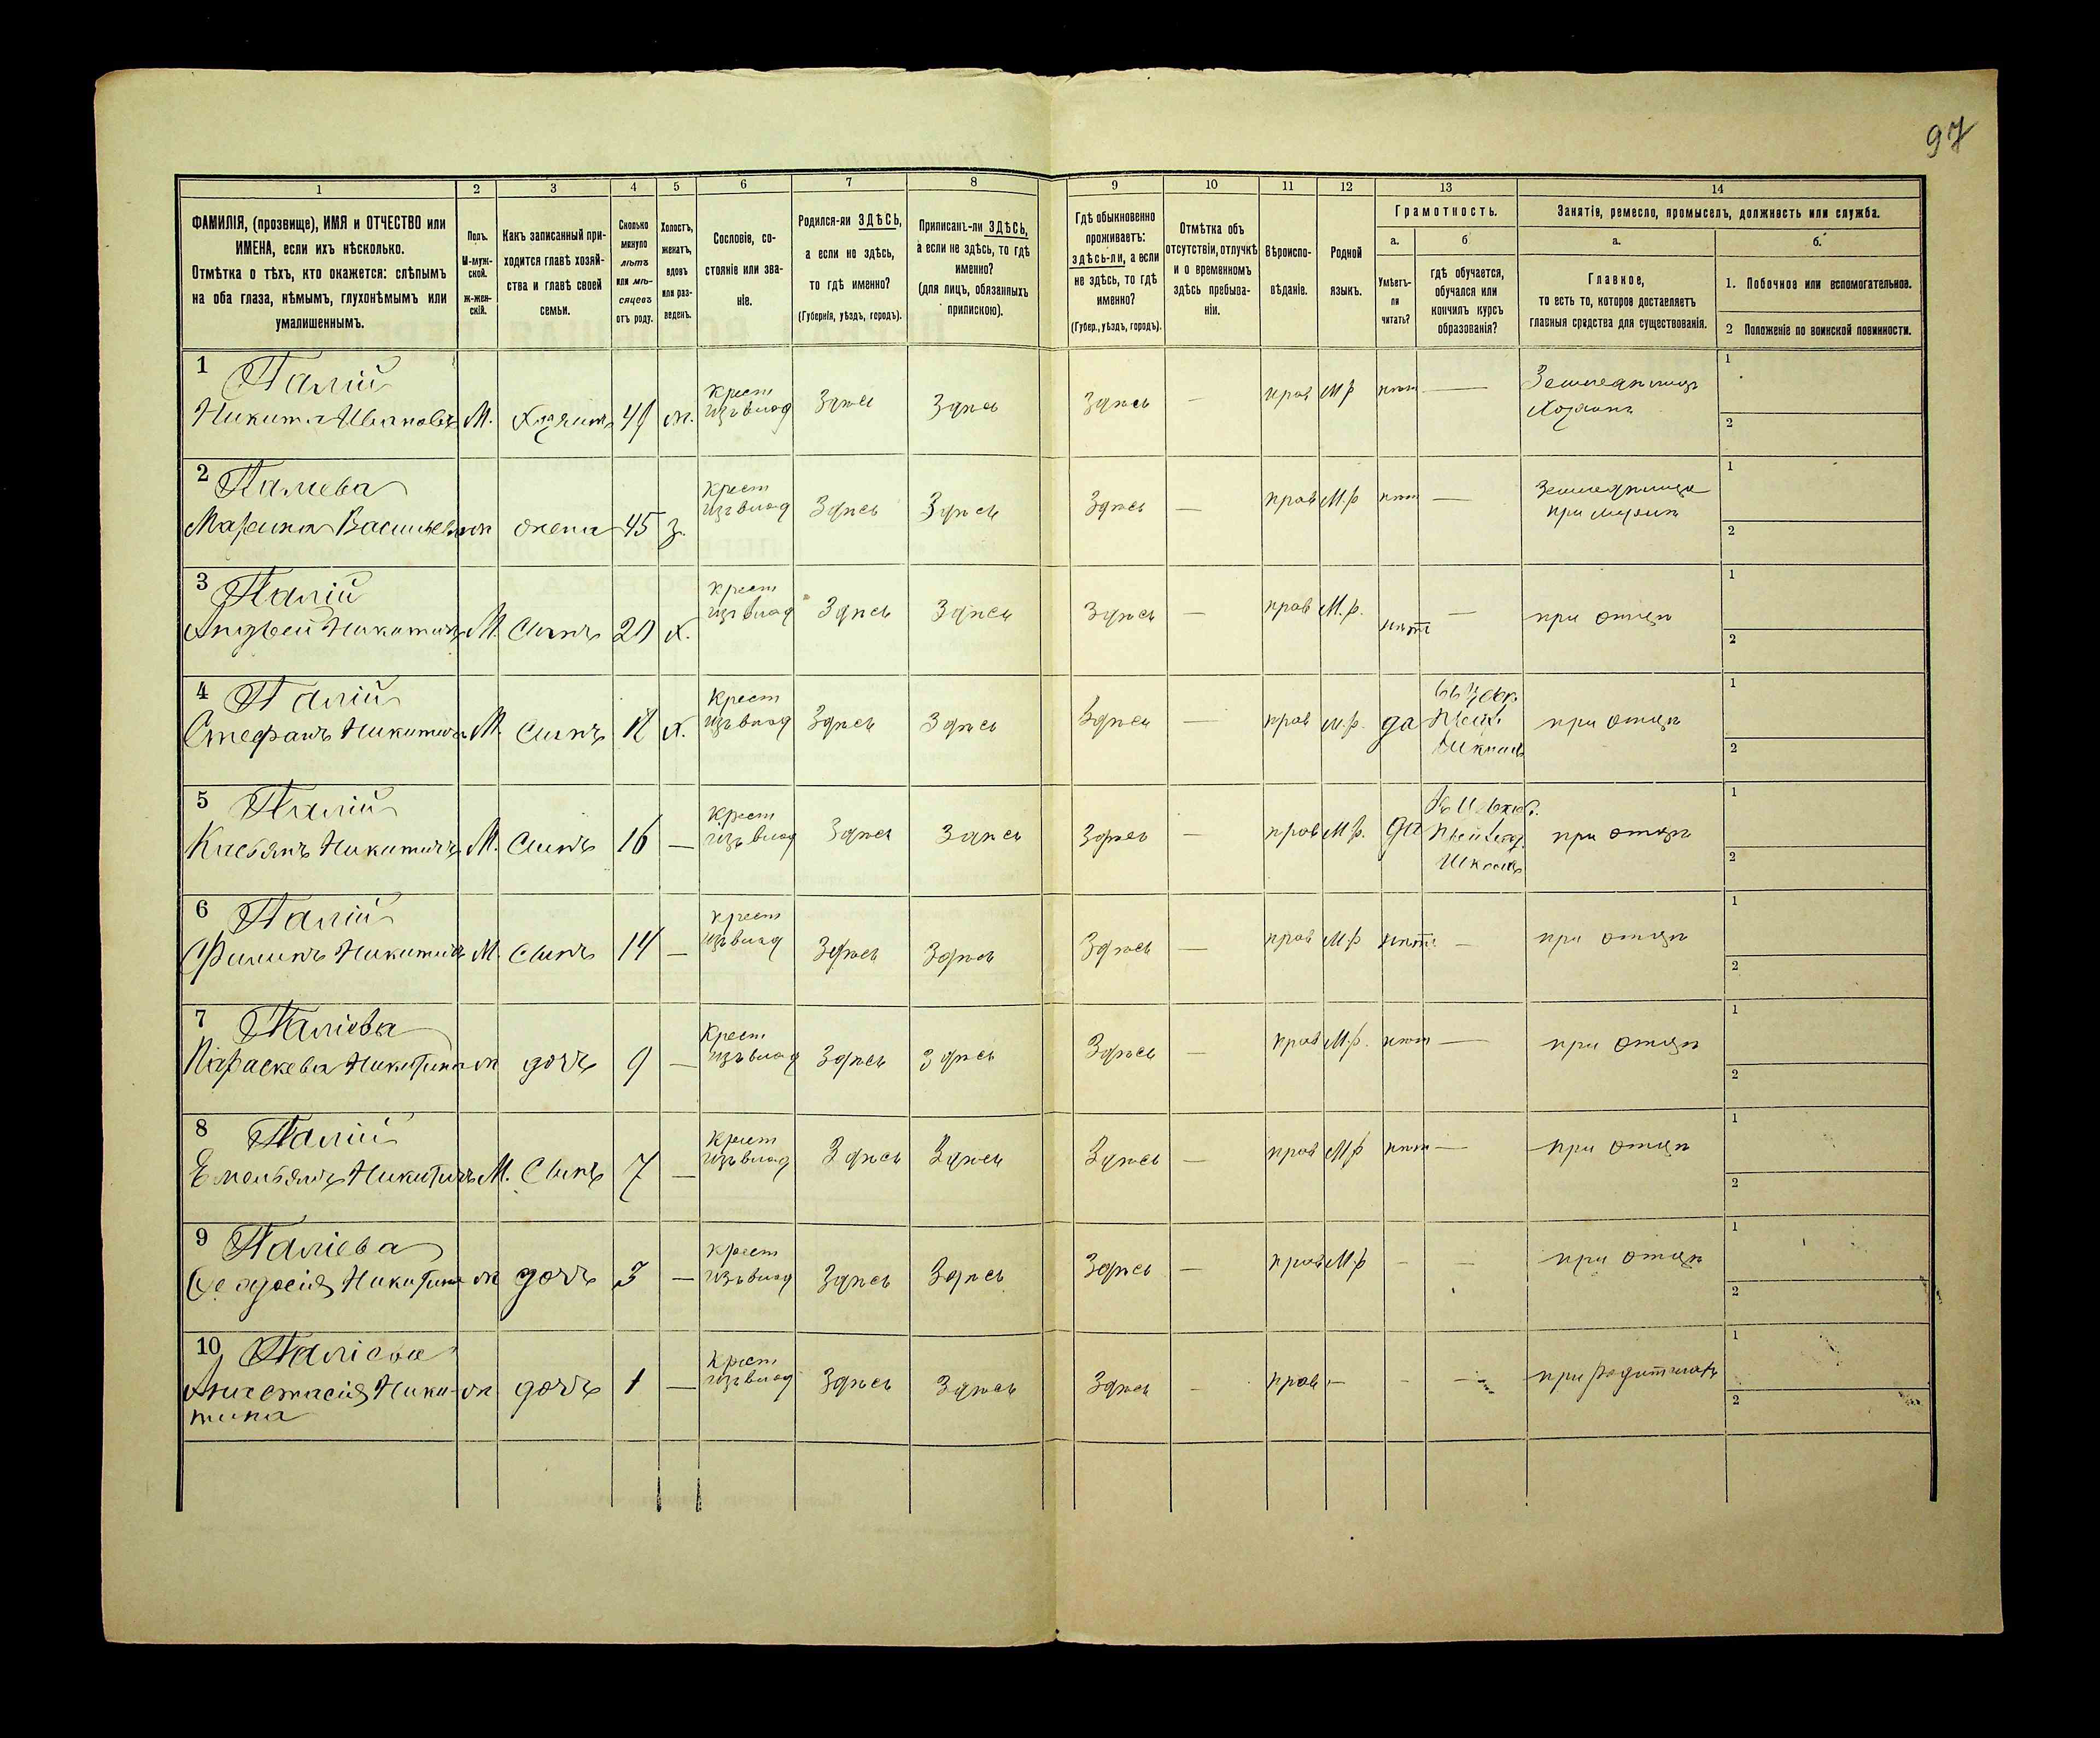 97
1 2 3 4 5 6 7 8 9 10 11 12 13 14
ФАМИЛІЯ, (прозвище), ИМЯ и ОТЧЕСТВО или
ИМЕНА, если ихъ нѣсколько.
Отмѣтка о тѣхъ, кто окажется: слѣпымъ
на оба глаза, нѣмымъ, глухонѣмымъ или
умалишеннымъ.
Полъ.
М-муж-
ской.
ж-жен-
скій.
Какъ записанный при-
ходится главѣ хозяй-
ства и главѣ своей
семьи.
Сколько
минуло
лѣтъ
или мѣ-
сяцевъ
отъ роду.
Холостъ,
женатъ,
вдовъ
или раз-
веденъ.
Сословіе, со-
стояніе или зва-
ніе.
Родился-ли ЗДѢСЬ,
а если не здѣсь,
то гдѣ именно?
(Губернія, уѣздъ, городъ).
Приписанъ-ли ЗДѢСЬ,
а если не здѣсь, то гдѣ
именно?
(для лицъ, обязанныхъ
припискою).
Гдѣ обыкновенно
проживаетъ:
здѣсь-ли, а если
не здѣсь, то гдѣ
именно?
(Губер., уѣздъ, городъ).
Отмѣтка объ
отсутствіи, отлучкѣ
и о временномъ
здѣсь пребыва-
ніи.
Вѣроиспо-
вѣданіе.
Родной
языкъ.
Грамотность.
а.
Умѣетъ-
ли
читать?
б
гдѣ обучается,
обучался или
кончилъ курсъ
образованія?
Занятіе, ремесло, промыселъ, должность или служба.
а.
Главное,
то есть то, которое доставляетъ
главныя средства для существованія.
б.
1. Побочное или вспомогательное.
2 Положеніе по воинской повинности.
1 Палій
Никита Ивановъ М. Хозяинъ ж. Крест изъ влад Здѣсь Здѣсь Здѣсь — прав М р нѣт —
Земледѣлецъ
Хозяинъ
1
2
2 Палиева
Марина Васильева ж жена 45 з. Крест изъ влад Здѣсь Здѣсь Здѣсь — прав М.р нѣт —
при мужѣ
1
2
3 Палій
Андрей Никитинъ М. Сынъ Х. Крест изъ влад Здѣсь Здѣсь Здѣсь — прав М.р. нѣт — при отцѣ
1
2
4 Палій
Стефанъ Никитинъ М. Сынъ Х. Крест изъ влад Здѣсь Здѣсь Здѣсь — прав М.р. да при отцѣ
1
2
5 Палій
Касьянъ Никитичъ М. Сынъ 16 — Крест изъ влад Здѣсь Здѣсь Здѣсь — прав М р. да
Школѣ
при отцѣ
1
2
6 Палій
Филипъ Никитинъ М. Сынъ 14 — Крест изъ влад Здѣсь Здѣсь Здѣсь — прав М.р нѣт — при отцѣ
1
2
7 Паліева
Параскева Никитина ж дочь 9 — Крест изъ влад Здѣсь Здѣсь Здѣсь — прав М.р. нѣт — при отцѣ
1
2
8 Палій
Емельянъ Никитинъ М. Сынъ 7 — Крест изъ влад Здѣсь Здѣсь Здѣсь — прав М р нѣт — при отцѣ
1
2
9 Паліева
Федосія Никитина ж дочь 3 — Крест изъ влад Здѣсь Здѣсь Здѣсь — прав М.р — — при отцѣ
1
2
10 Паліева
Анастасія Ники- ж дочь 1 — Крест изъ влад Здѣсь Здѣсь Здѣсь — прав — — — при родителяхъ
тина
1
2